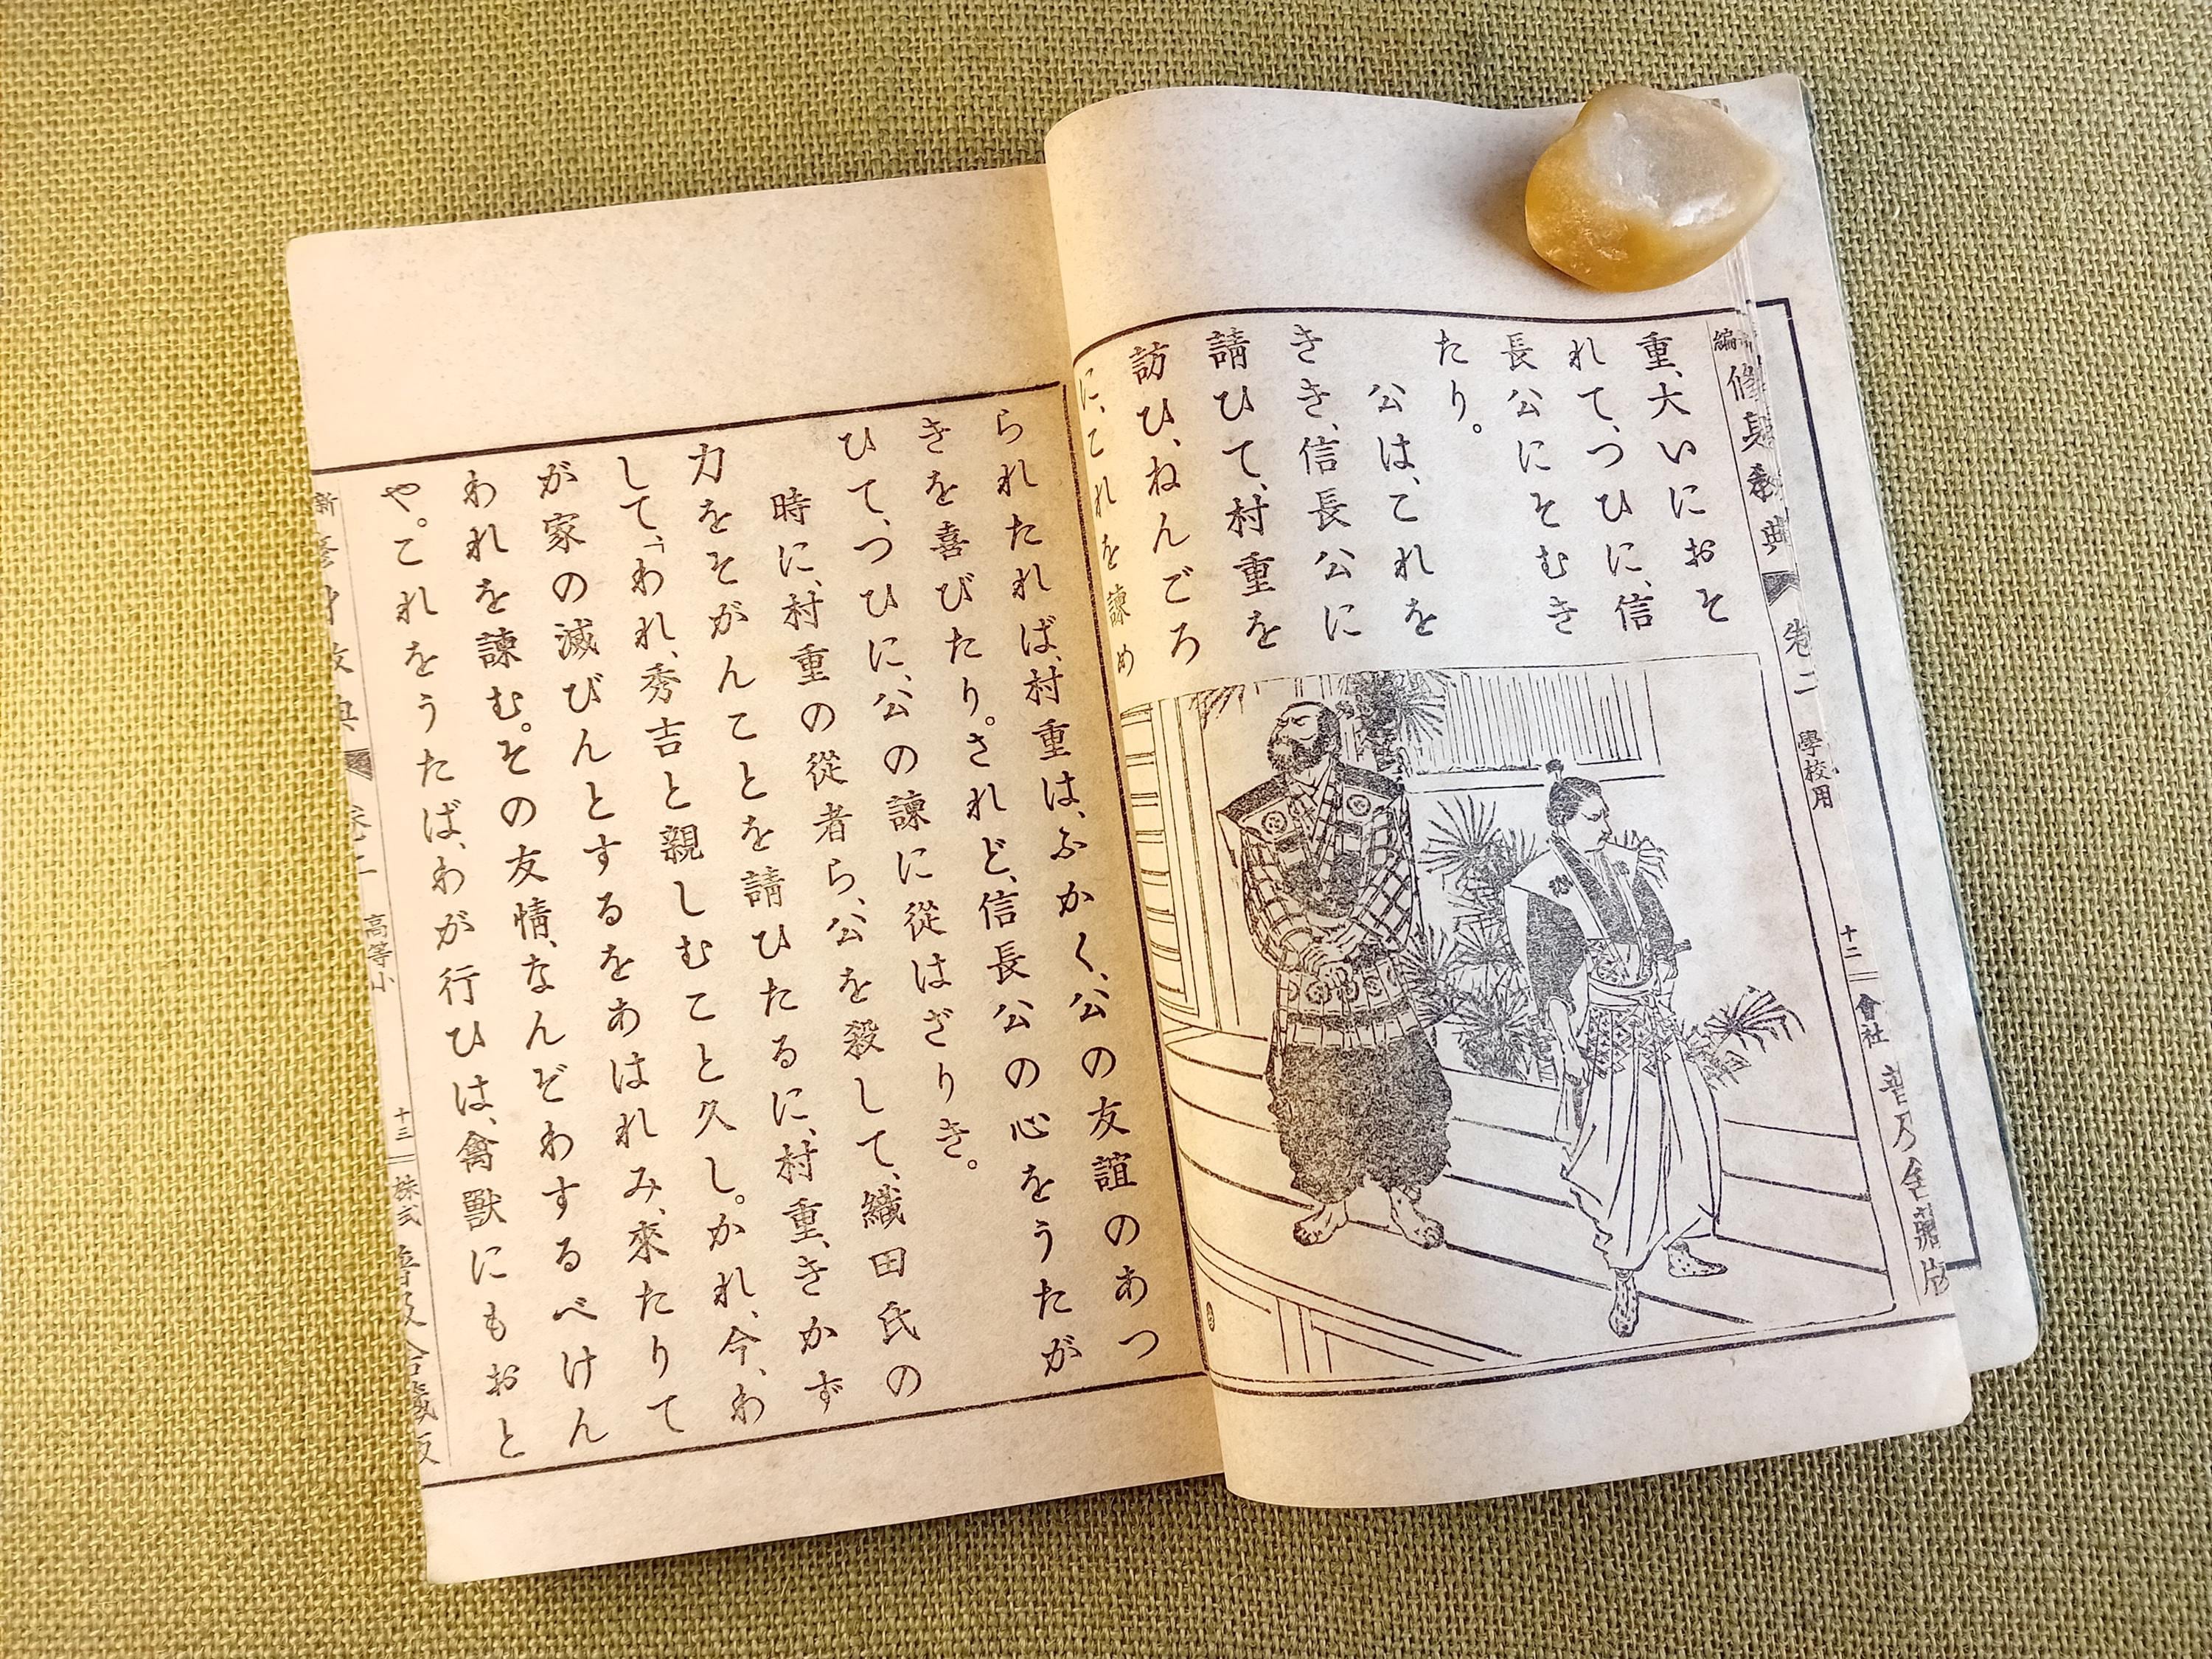 編
修身教典
卷二
學校用
十二
會社
普及舍藏版
重、大いにおそ
れて、つひに、信
長公にそむき
たり。
公は、これを
きき、信長公に
請ひて、村重を
訪ひ、ねんごろ
に、これを諫め
られたれば、村重は、ふかく、公の友誼のあつ
きを喜びたり。されど、信長公の心をうたが
ひて、つひに、公の諫に從はざりき。
時に、村重の從者ら、公を殺して、織田氏の
力をそがんことを請ひたるに、村重、きかず
して、「われ、秀吉と親しむこと久し。かれ、今、わ
が家の滅びんとするをあはれみ、來たりて
われを諫む。その友情、なんぞわするべけん
や。これをうたば、わが行ひは、禽獸にもおと
新
高等小
十三
株式